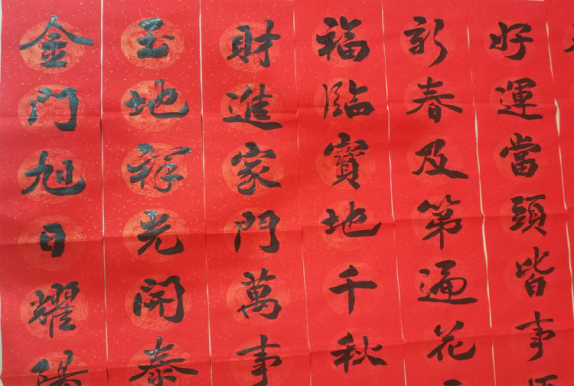 好運當頭皆事
新春及第遍花
福臨寶地千秋
財進家門萬事
玉地祥光開泰
金门旭日耀陽